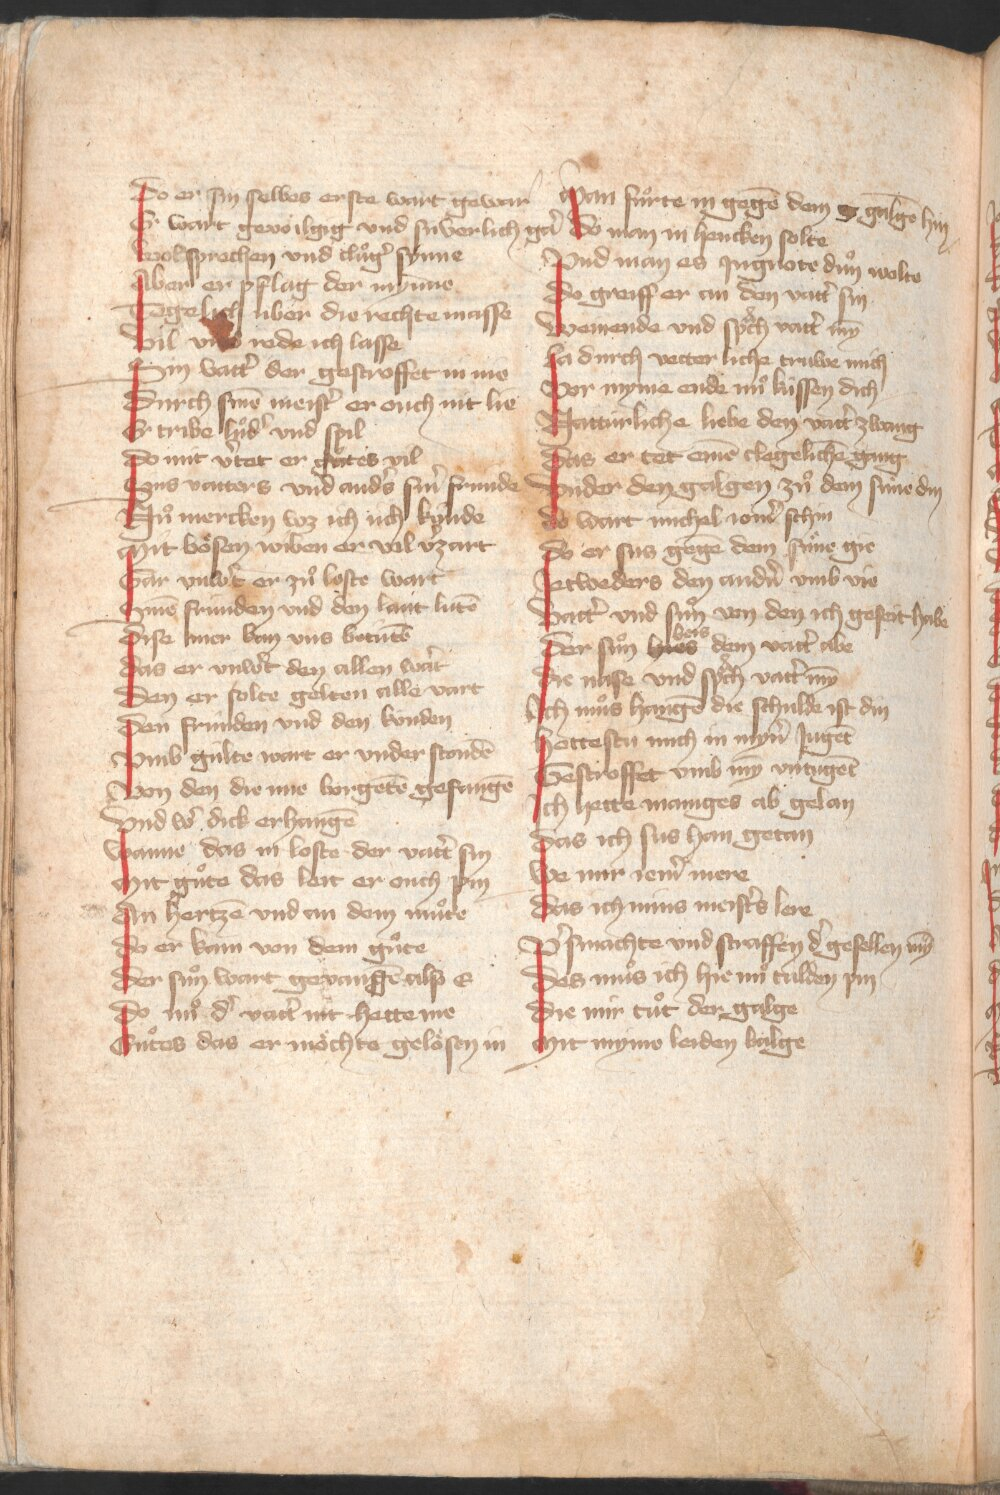 Do er sin selbes erste wart gewar
Er wart gevoͤilgig vnd suͤverlich gar̾
Wolsprechen vnd cluͦg̾ sinne
Aber er pflag der mynne
Tegelich über die rechte masse
Vil rede ich lasse
Sin vatt̾ der gestroffet in nie
Durch sinē meist̾ er ouch nit lie
Er tribe luͦd̾ vnd spil
Do mit v̾tet er gůtes vil
Sins vatters vnd and̾s sin̾ frunde
Nuͦ mercken wz ich üch kv̈nde
Mit boͤsen wiben er vil v̾zart
Gar vnw̾t er zuͦ loste wart
Sinē frunden vnd den lant lutē
Dise mer kan vns betutē
das er vnw̾t den allen wart̾
Den er solte gelten alle vart
Den frunden vnd den kunden
Vmb gulte wart er vnder standē
Von den die ime borgetē gefangē
Vnd w̾ dick erhangē
Wanne das in loste der vatt̾ sin
Mit guͦte das leit er ouch pin
An hertzē vnd an dem muͦte
do er kam von dem guͦte
Der suͦn wart gevangē alß e
Do nuͦ d̾ vatt̾ nit hette me
Guͦtes das er moͤchte geloͤsen in
Man fuͦrte in gegē dem galgē hin
Do man in hencken solte
Vnd man es yngnote duͦn wolte
do greiff er an den vatt̾ sin
Weinende vnd sp̾ch vatt̾ mȳ
La durch vetterliche truwe mich
Vor myme ende nuͦ küssen dich
Natturliche liebe den vatt̾ zwang
Das er tet einē clegelichē gang
Vnder den galgen zuͦ dem süne din
do wart michel iom̾ schin
Do er sus gegē dem suͦne gie
Ietweders den and̾n vmb vie
Vatt̾ vnd suͦn von den ich geseit habe
Der suͦn hies beis dem vatt̾ abe
Die nase vnd sp̾ch vatt̾ mȳ
Ich muͦs hangē die schulde ist din
Hettestu mich in myn̾ Juget
Gestroffet vmb mȳ vntuget
Ich hette maniges ab gelan
Das ich sus han getan
We mir iem̾ mere
Das ich mins meist̾s lere
V̾smachte vnd straffen d̾ gesellen mȳ
Des muͦs ich hie nuͦ tulden pin
Die mir tuͦt der galge
Mit myme leiden balge